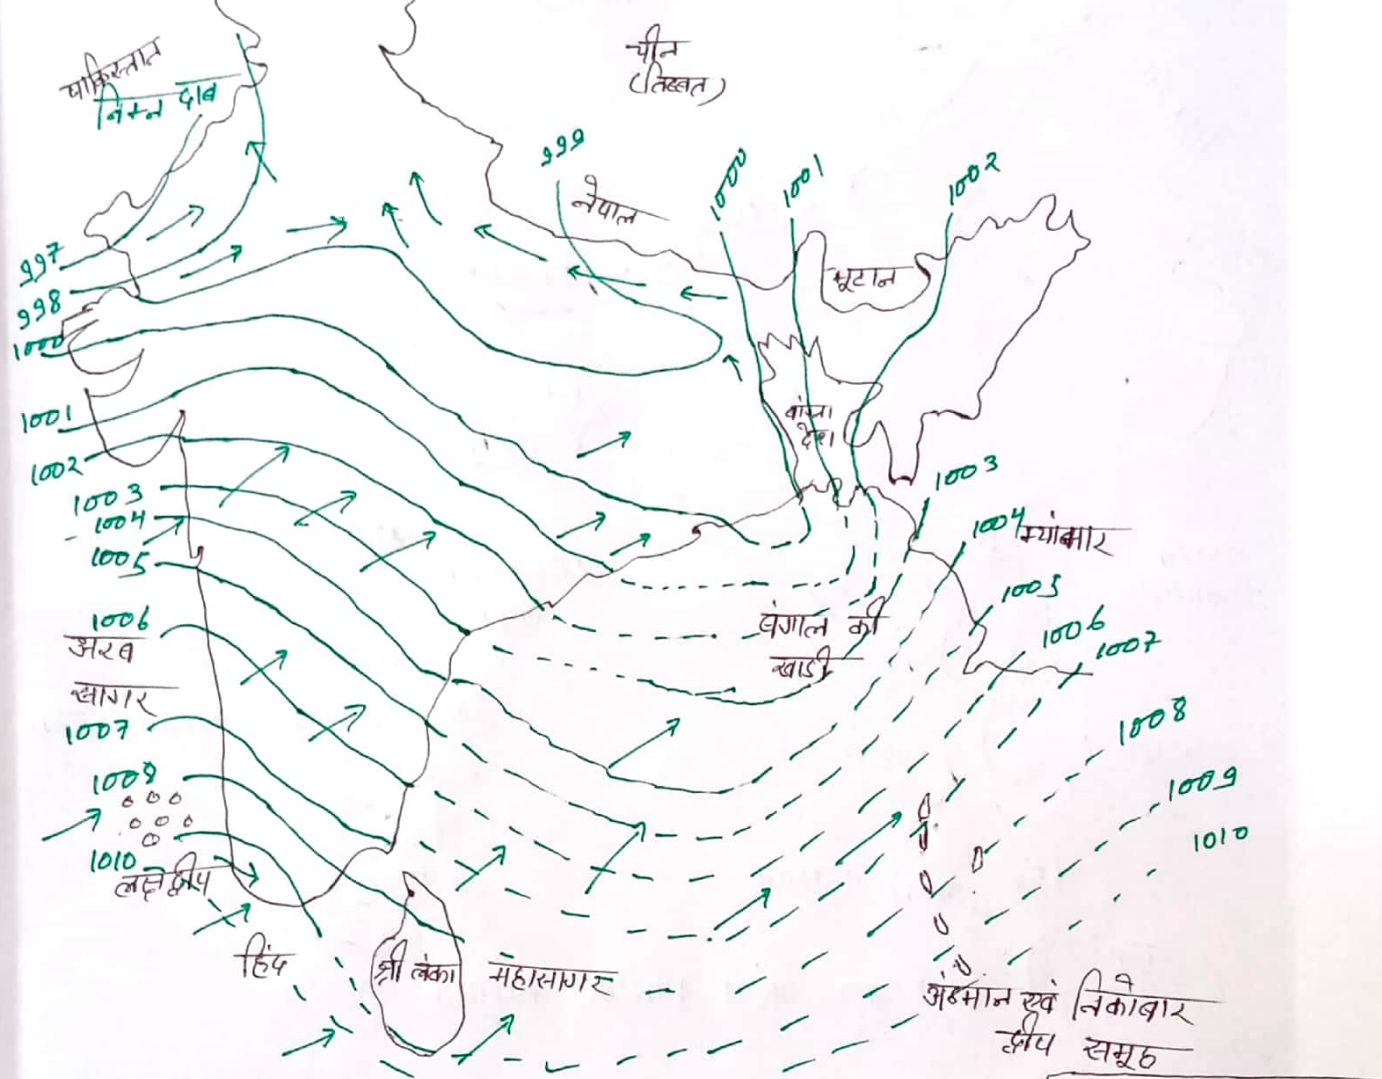 पाकिस्तान
निम्न दाब
चीन
(तिब्बत)
999
नेपाल
1000
1001
1002
भूटान
997
998
1000
1001
1002
1003
1004
1005
1006
अरब
सागर
1007
1008
1010
लक्षद्वीप
बांग्ला
देश
1003
1004
म्यांमार
1005
1006
1007
बंगाल की
खाड़ी
1008
1009
1010
हिंद
श्री लंका
महासागर
अंडमान एवं निकोबार
द्वीप समूह